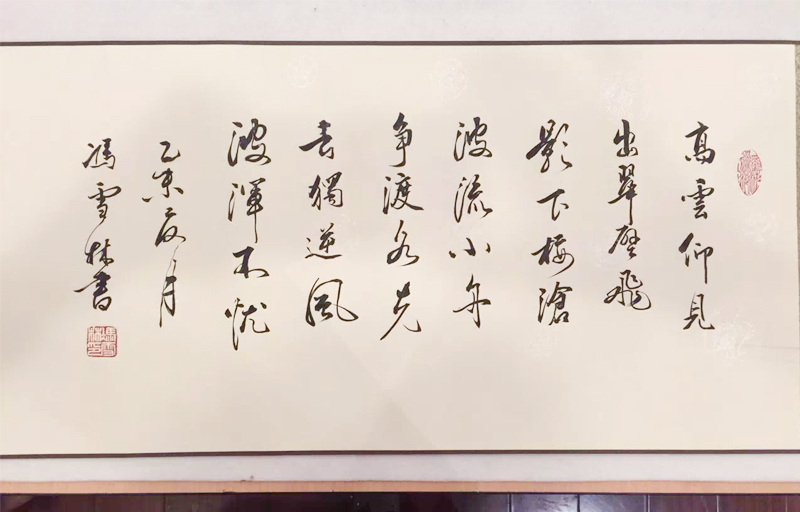 高雲仰見
出翠壁飛
影下接滄
波流小舟
争渡各先
去獨逆風
波渾不忧
乙未夏月
馮雪林書